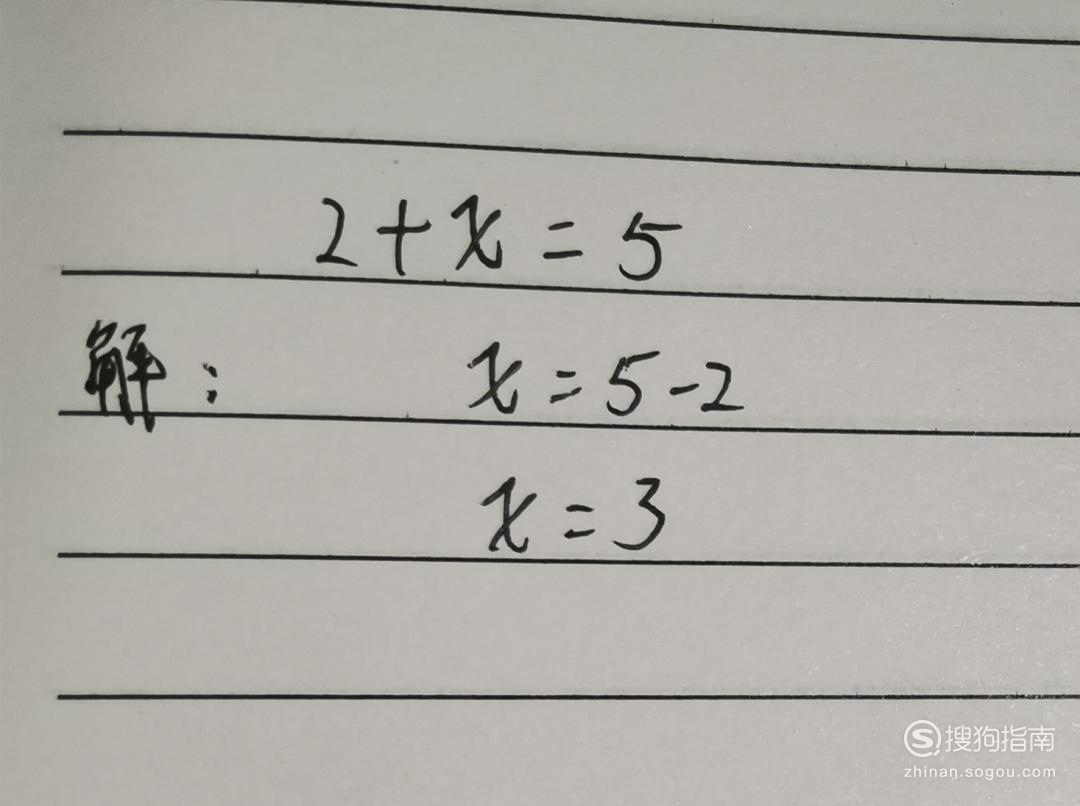 2+x=5
解: x=5-2
x=3
搜狗指南
zhinan.sogou.com